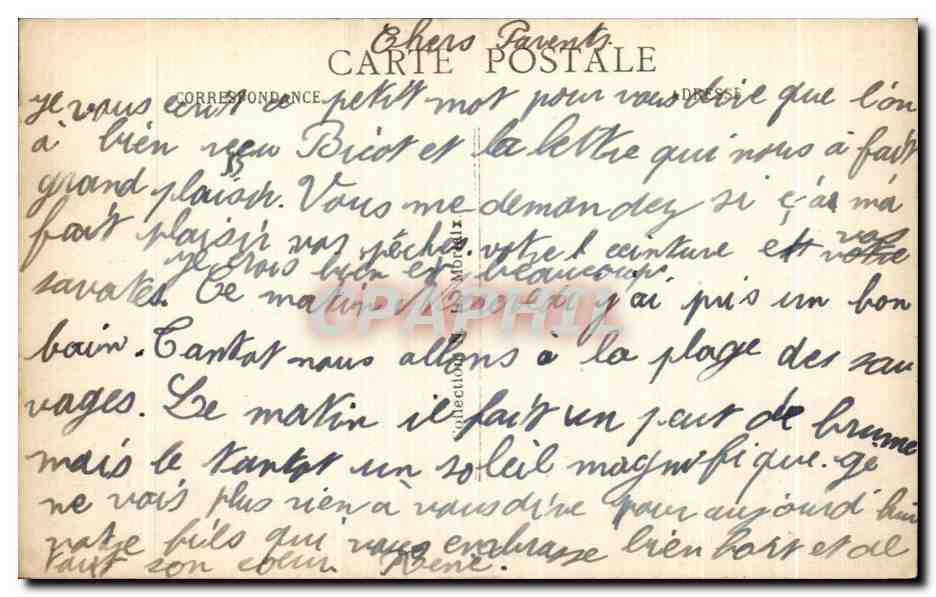 Chers Parents
CARTE POSTALE
CORRESPONDANCE
ADRESSE
je vous écrit ce petit mot pour vous dire que l'on
à bien reçu Bicot et la lettre qui nous à fait
grand plaisir. Vous me demandez si ç'ai m'à
fait plaisir vos pêches votre ceinture et vos
je crois bien et beaucoup.
savates. Ce matin j'ai pris un bon
bain. Tantot nous allons à la plage des sau
vages. Le matin il fait un peut de brume
mais le tantot un soleil magnifique. Je
ne vois plus rien à vous dire pour aujourd'hui
votre fils qui vous embrasse bien fort et de
tout son cœur. René.
CPAPHIL
Collection